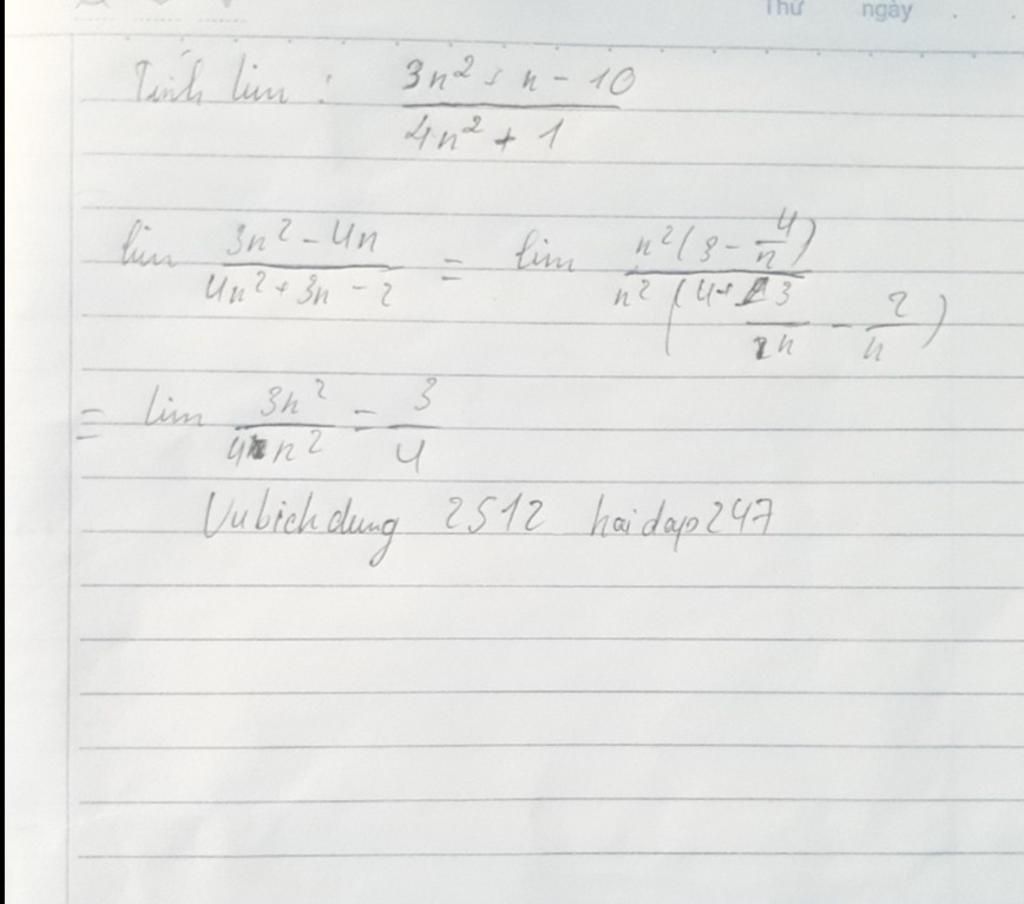 Thứ ngày . .
Tính lim : \frac{3n^2 + n - 10}{4n^2 + 1}
lim \frac{3n^2 - 4n}{4n^2 + 3n - 2} = lim \frac{n^2(3 - \frac{4}{n})}{n^2(4 + \frac{3}{n} - \frac{2}{n})}
= lim \frac{3n^2}{4n^2} = \frac{3}{4}
Vubichdung 2512 hoidap247